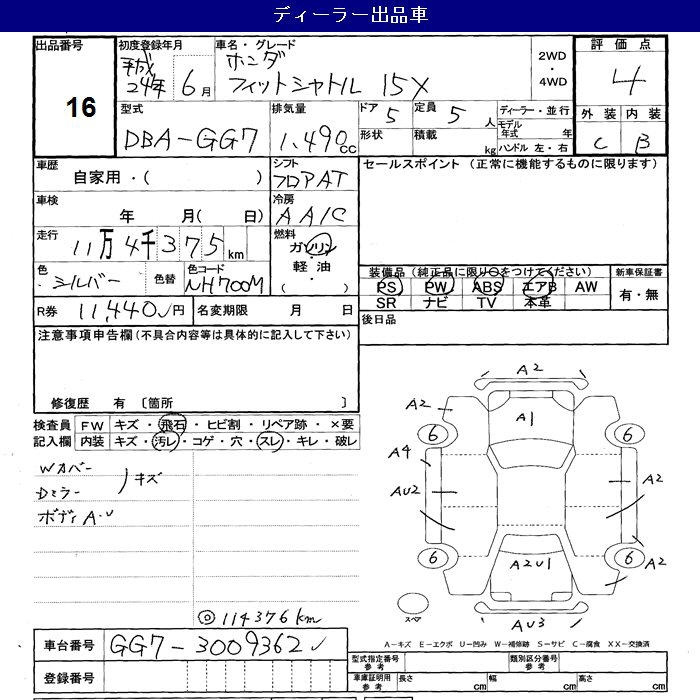 ディーラー出品車
出品番号
16
初度登録年月
平成
24年 6月
車名・グレード
ホンダ
フィットシャトル 15X
2WD
・
4WD
評価点
4
外装 内装
C B
型式
DBA-GG7
排気量
1,490cc
ドア
5
定員
5人
形状
積載
kg
ディーラー・並行
モデル年式 年
ハンドル 左・右
車歴
自家用・( )
シフト
フロアAT
車検
年 月( 日)
冷房
AAIC
走行
11万4千375km
燃料
ガソリン
・
軽油
・
( )
色
シルバー
色替
色コード
NH700M
R券
11,440円
名変期限 月 日
セールスポイント (正常に機能するものに限ります)
装備品(純正品に限り○をつけてください)
PS PW ABS エアB AW
SR ナビ TV 本革
新車保証書
有・無
後日品
注意事項申告欄(不具合内容等は具体的に記入して下さい)
修復歴 有 〔箇所 〕
検査員記入欄
FW キズ・飛石・ヒビ割・リペア跡・×要
内装 キズ・汚レ・コゲ・穴・スレ・キレ・破レ
Wカバー
Dミラー
キズ
ボディA・U
◎114376km
A2
A2
A1
6
6
A4
A2
AU2
6
6
A2
A2U1
スペア
AU3
A-キズ E-エクボ U-凹み W-補修跡 S-サビ C-腐食 XX-交換済
車台番号
GG7-3009362
登録番号
型式指定番号
参考
類別区分番号
参考
車庫証明用
参考
長さ
cm
幅
cm
高さ
cm